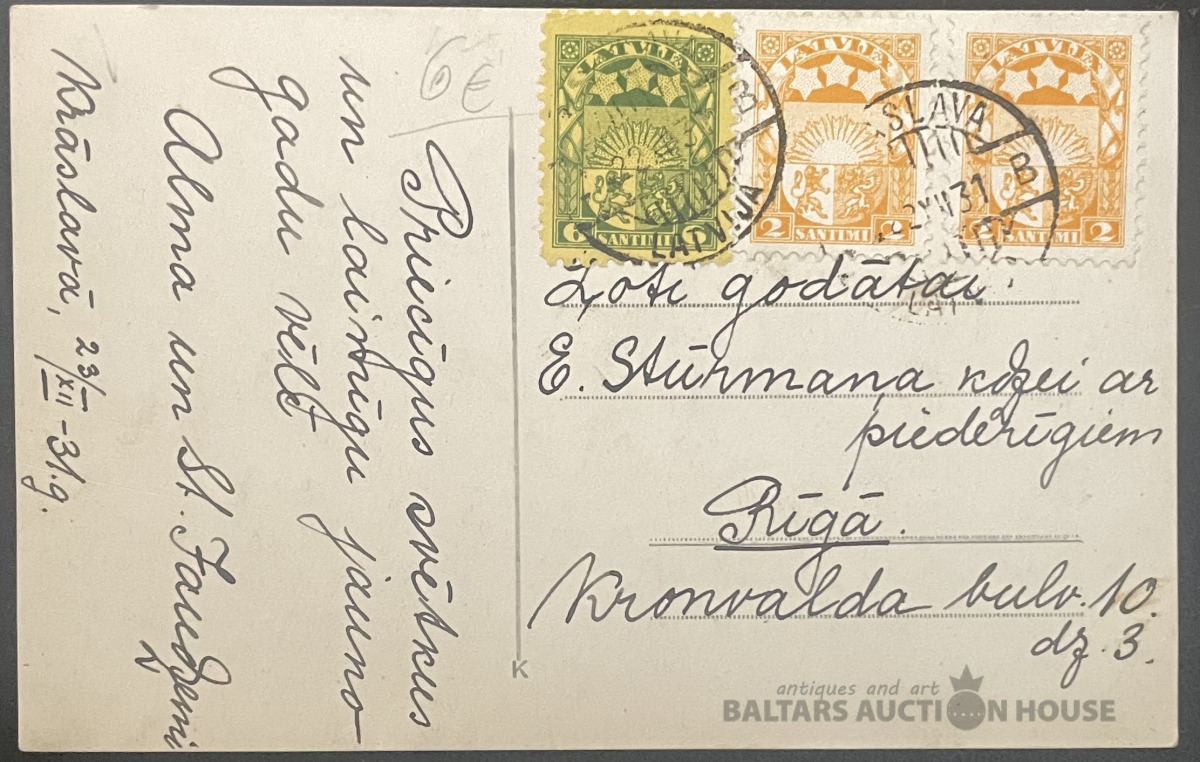 6€
Priecīgus svētkus
un laimīgu jauno
gadu vēlē
Alma un St. Jaudzemi
Krāslavā, 23/XII-31.g.
LATVIJA
6 SANTIMI 6
LATVIJA
2 SANTIMI 2
LATVIJA
2 SANTIMI 2
B
LATVIJA
SLAVA
B
XII 31
Ļoti godātai
E. Stūrmana kdzei ar
piederīgiem
Rīgā.
Kronvalda bulv. 10.
dz. 3.
K
antiques and art
BALTARS AUCTION HOUSE